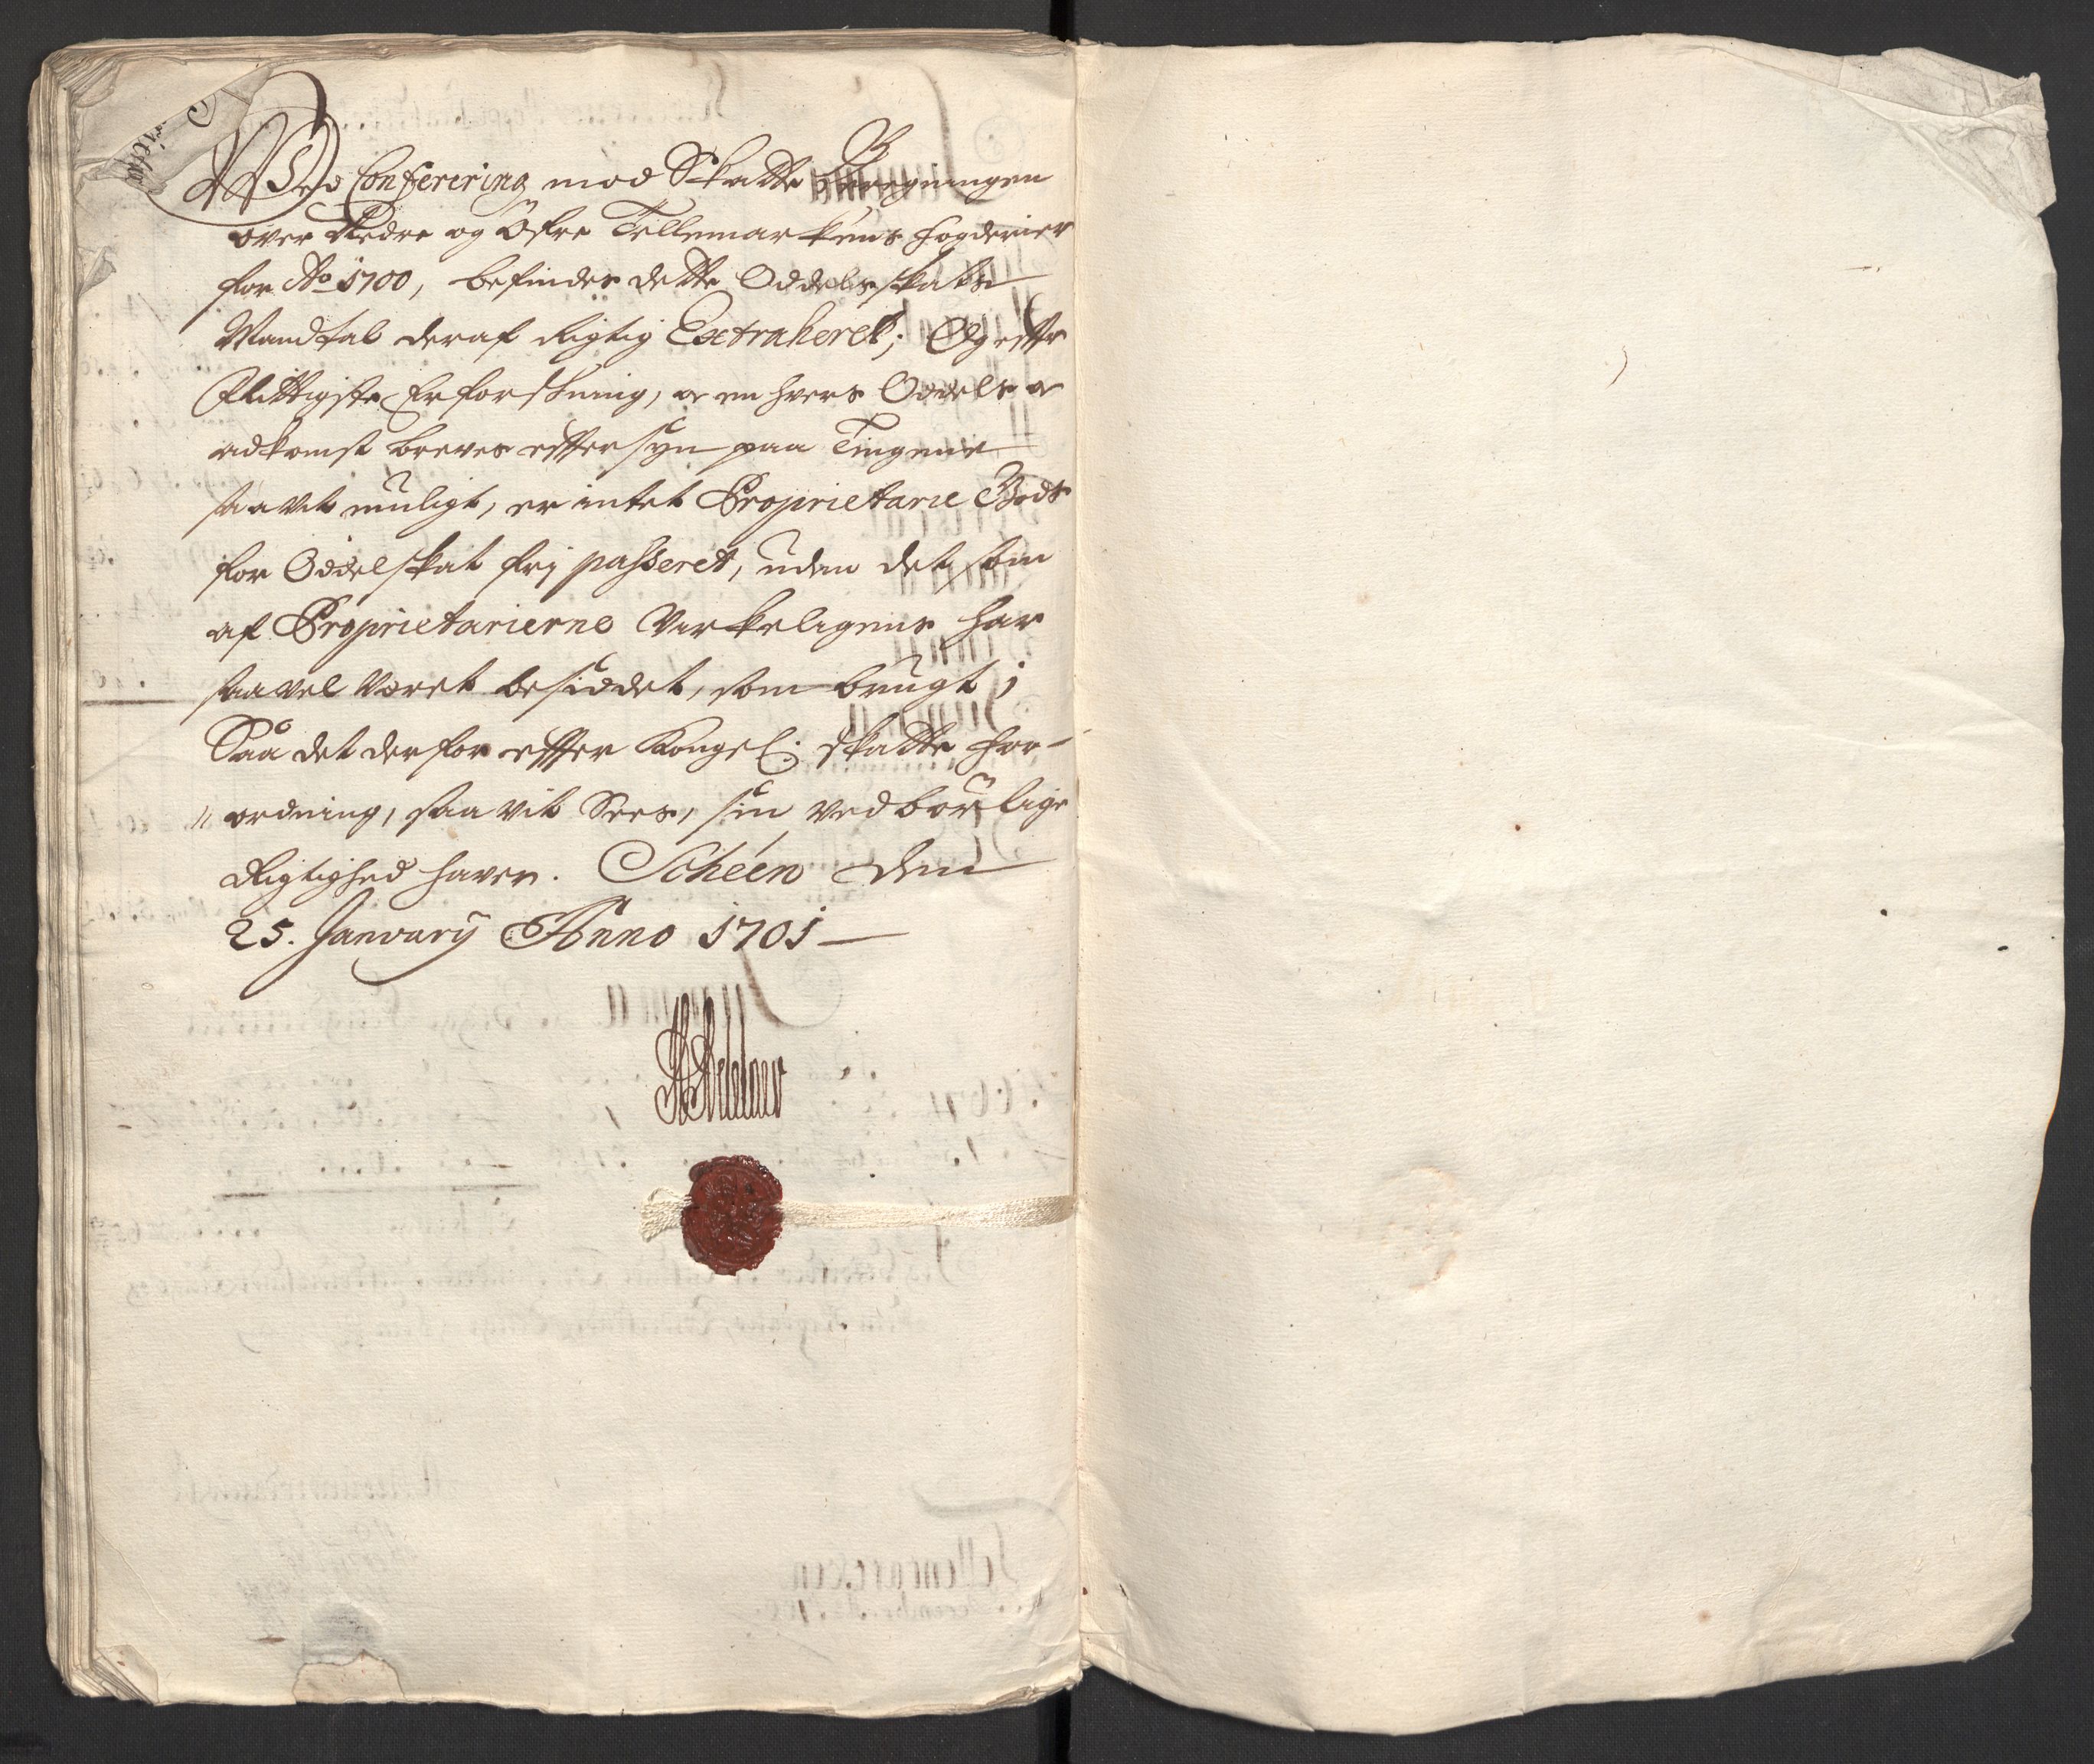 Wed Conferering mod Skatte Beregningen
over Nedre og Öfre Tellemarkens fogderier
for Ao 1700, befindes dette Oddels skatts
Mandtal deraf Rigtig Extraheret; Og efter
flittigste Erforskning, og en hvers Oddels og
adkomst breves effter syn paa Tingene
saavit muligt, er intet Proprietarie Gods
for Oddelskat frj passeret, uden det som
af Proprietarierne Verkeligens har
saavel været besiddet, som brugt;
Saa det derfor effter Kongel: skatte for-
ordning, saa vit Sees, sin vedbørlige
Rigtighed haver. Schéen den
25. Januarÿ Anno 1701